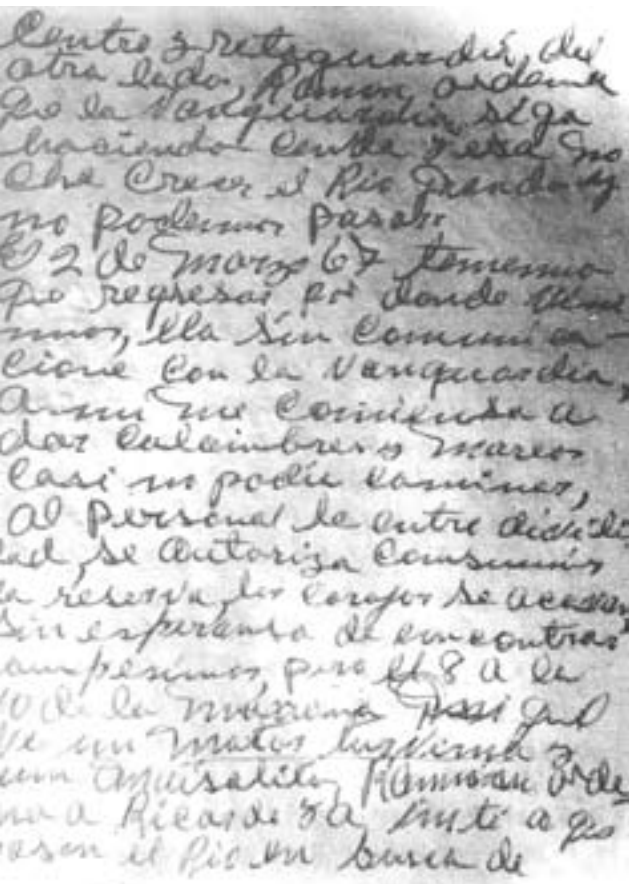 Centro y retaguardia, del
otra lado, Ramon, ordena
que la Vanguardia, siga
haciendo y esa no
che Crece el Rio Grande y
no podemos pasar,
El 2 de Marzo 67 tenemos
que regresar por donde veni
mos, ella sin Comunica-
cione Con la Vanguardia,
A mi me Comiensa a
dar Calambres y mareos
Casi no podia Caminar,
Al Personal le entre
dad, se autoriza Consumir
la reserva, los se acaban
sin esperansa de encontrar
campesinos, pero el 8 a la
10 de la manana Miguel
Ve un y
una Ramon orde
na a Ricardo y a Inti a que
pasen el Rio en busca de